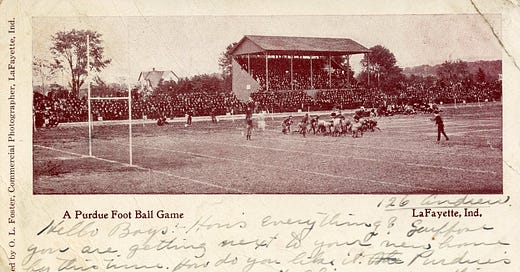 ed by O. L. Foster, Commercial Photographer, LaFayette, Ind.
A Purdue Foot Ball Game
LaFayette, Ind.
126 Andrew
Hello Boys! How's Everything?
you are getting next to your new home
by this time. How do you like it. Purdue's